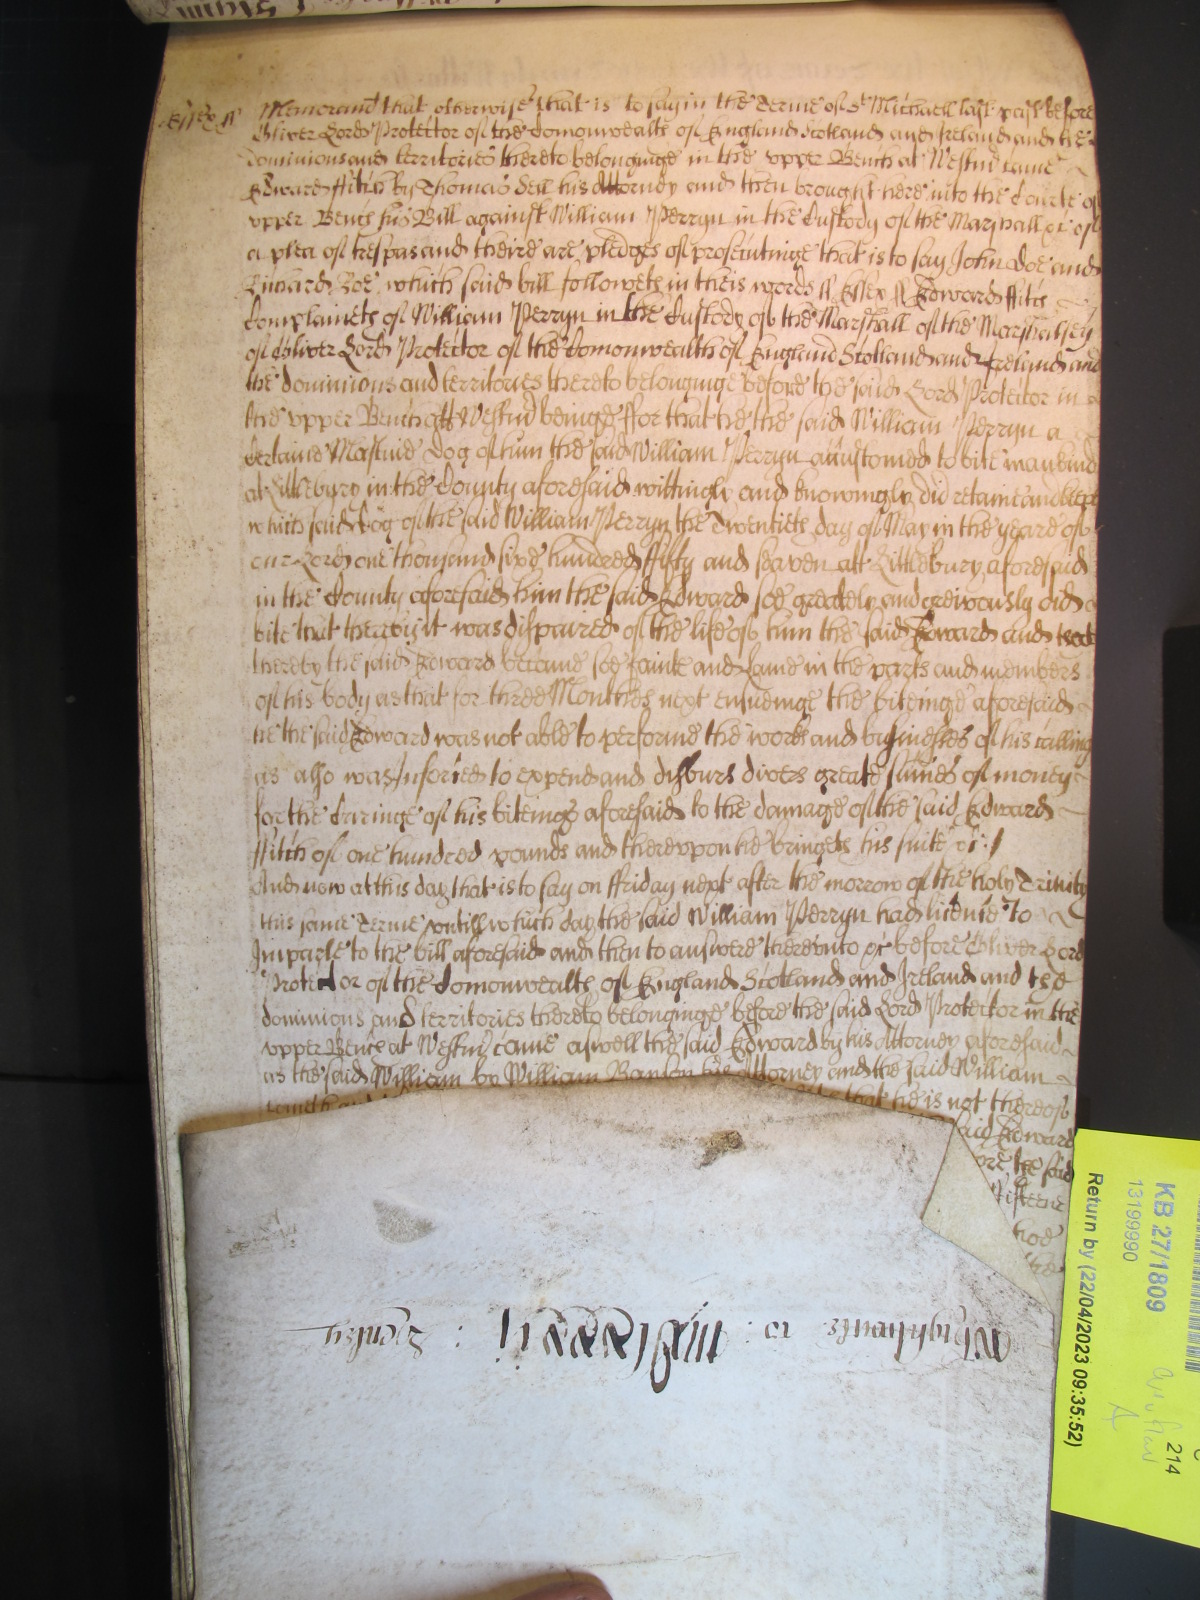 Essex ss Memorand that otherwise that is to say in the Terme of St Michaell last past before
Oliver Lord Protector of the Comonwealth of England Scotland and Ireland and the
dominions and territories thereto belonginge in the vpper Bench at Westmr came
Edward ffitch by Thomas Sell his Attorney and then brought here into the Courte of
vpper Bench his Bill against William Perryn in the Custody of the Marshall &c of
a plea of trespas and theire are pledges of prosecutinge that is to say John Doe and
Richard Roe which said bill followeth in theis words ss Essex ss Edward ffitch
Complaineth of William Perryn in the Custody of the Marshall of the Marshalsey
of Oliver Lord Protector of the Comonwealth of England Scotland and Ireland and
the dominions and territories thereto belonginge before the said Lord Protector in
the vpper Bench att Westmr beinge ffor that he the said William Perryn a
Certaine Mastive dog of him the said William Perryn accustomed to bite mankind
at Littlebury in the County aforesaid wittingly and knowingly did retaine and keepe
which said dog of the said William Perryn the Twentieth day of May in the yeare of
our Lord one thousand sixe hundred ffifty and seaven att Littlebury aforesaid
in the County aforesaid him the said Edward soe greately and greivously did
bite that thereby it was dispaired of the life of him the said Edward and
thereby the said Edward became soe fainte and Lame in the parts and members
of his body as that for three Monthes next ensueinge the biteinge aforesaid
he the said Edward was not able to performe the works and businesses of his calling
as also was inforced to expend and disburs divers greate sumes of money
for the Curinge of his biteing aforesaid to the damage of the said Edward
ffitch of one hundred pounds and therevpon he bringeth his suite &c:
And now at this day that is to say on ffriday next after the morrow of the holy Trinity
this same Terme vntill which day the said William Perryn had licence to
Imparle to the bill aforesaid and then to answere therevnto &c before Oliver Lord
Protector of the Comonwealth of England Scotland and Ireland and the
dominions and territories thereto belonginge before the said Lord Protector in the
vpper Bench at Westmr came aswell the said Edward by his Attorney aforesaid
as the said William by William his Attorney and the said William
that he is not thereof
said Edward
the said
KB 27/1809
13199990
Return by (22/04/2023 09:35:52)
214
A